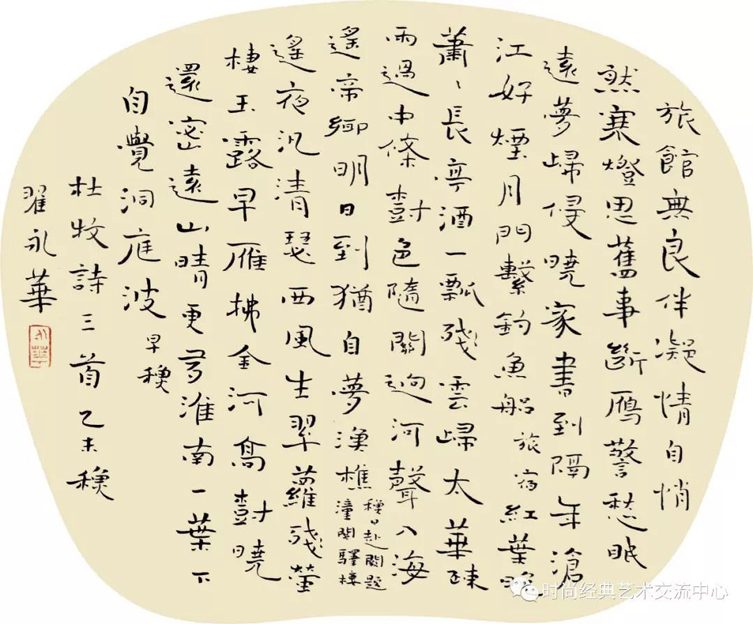 旅館無良伴凝情自悄
然寒燈思舊事斷鴈警愁眠
遠夢歸侵曉家書到隔年滄
江好煙月門繫釣魚船 旅宿 紅葉晚
蕭、長亭酒一瓢殘雲歸太華疎
雨過中條樹色隨關逈河聲入海
遙帝鄉明日到猶自夢漁樵 穐日赴闕題潼關驛樓
遙夜汎清瑟西風生翠蘿殘螢
棲玉露早雁拂金河高樹曉
還密遠山晴更多淮南一葉下
自覺洞庭波 早穐
杜牧詩三首乙未穐
翟永華
时尚经典艺术交流中心